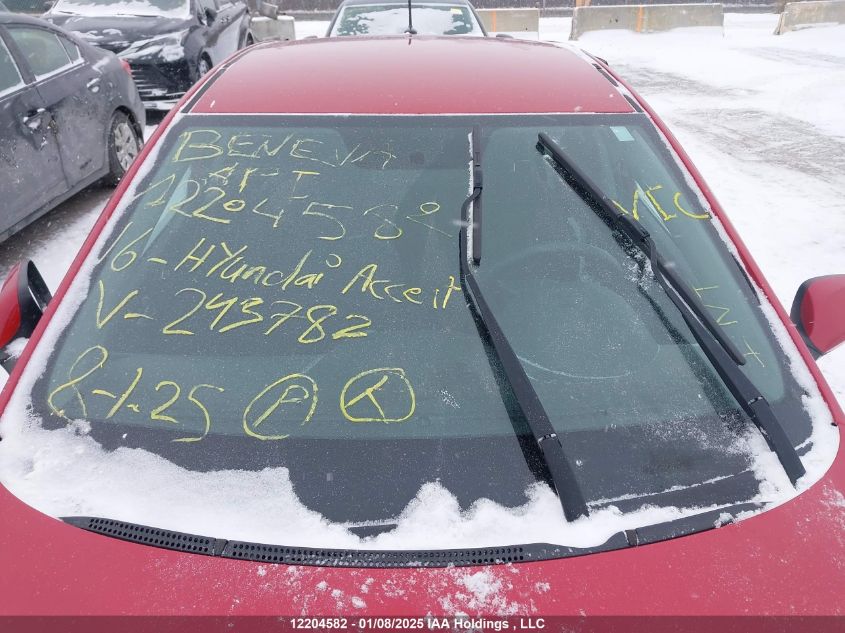 BENEVA
12204582
16-HYundai Accent
V-243782
8-1.25 P K
VIC
INT +
12204582 - 01/08/2025 IAA Holdings , LLC